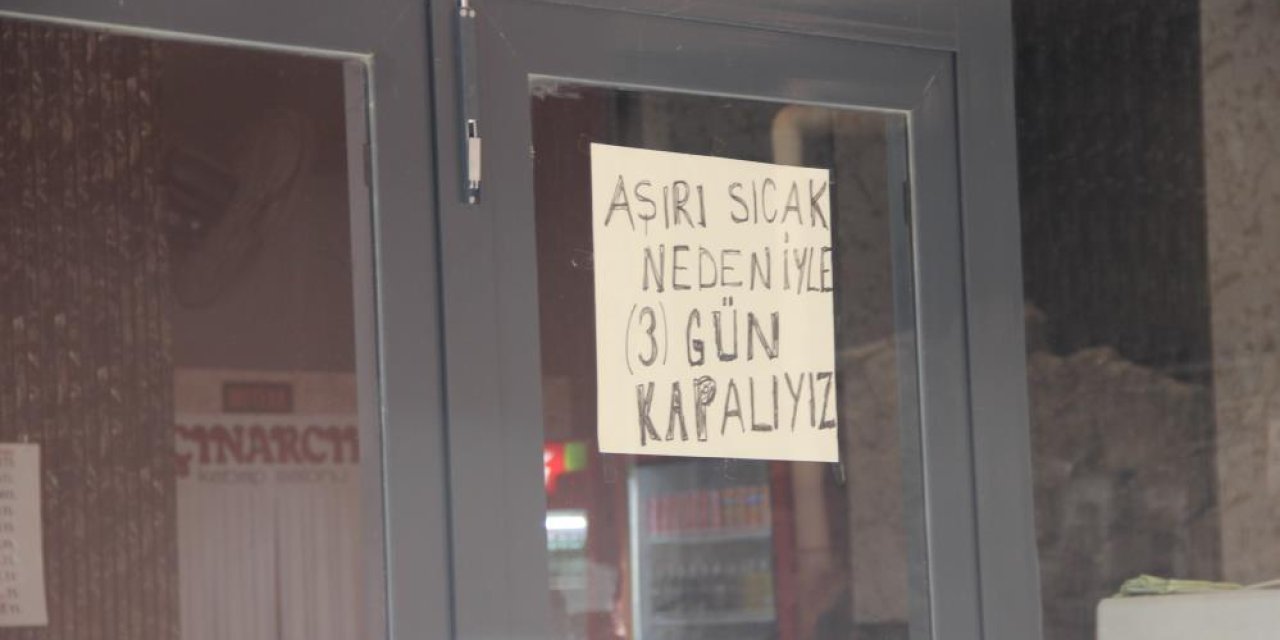 AŞIRI SICAK
NEDENİYLE
(3) GÜN
KAPALIYIZ
ÇINARCI
kebap salonu